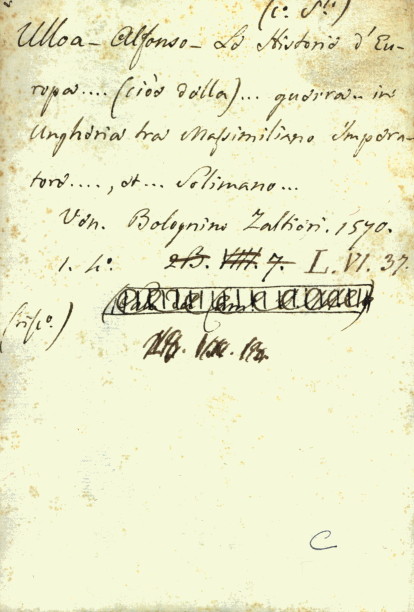 (c. St.)
Ulloa - Alfonso - Le Historie d'Eu-
ropa .... (cioè della) ... guerra in
Ungheria tra Massimiliano Impera-
tore ...., et ... Solimano ...
Ven. Bolognino Zaltieri. 1570.
1. 4°. L. VI. 37.
C